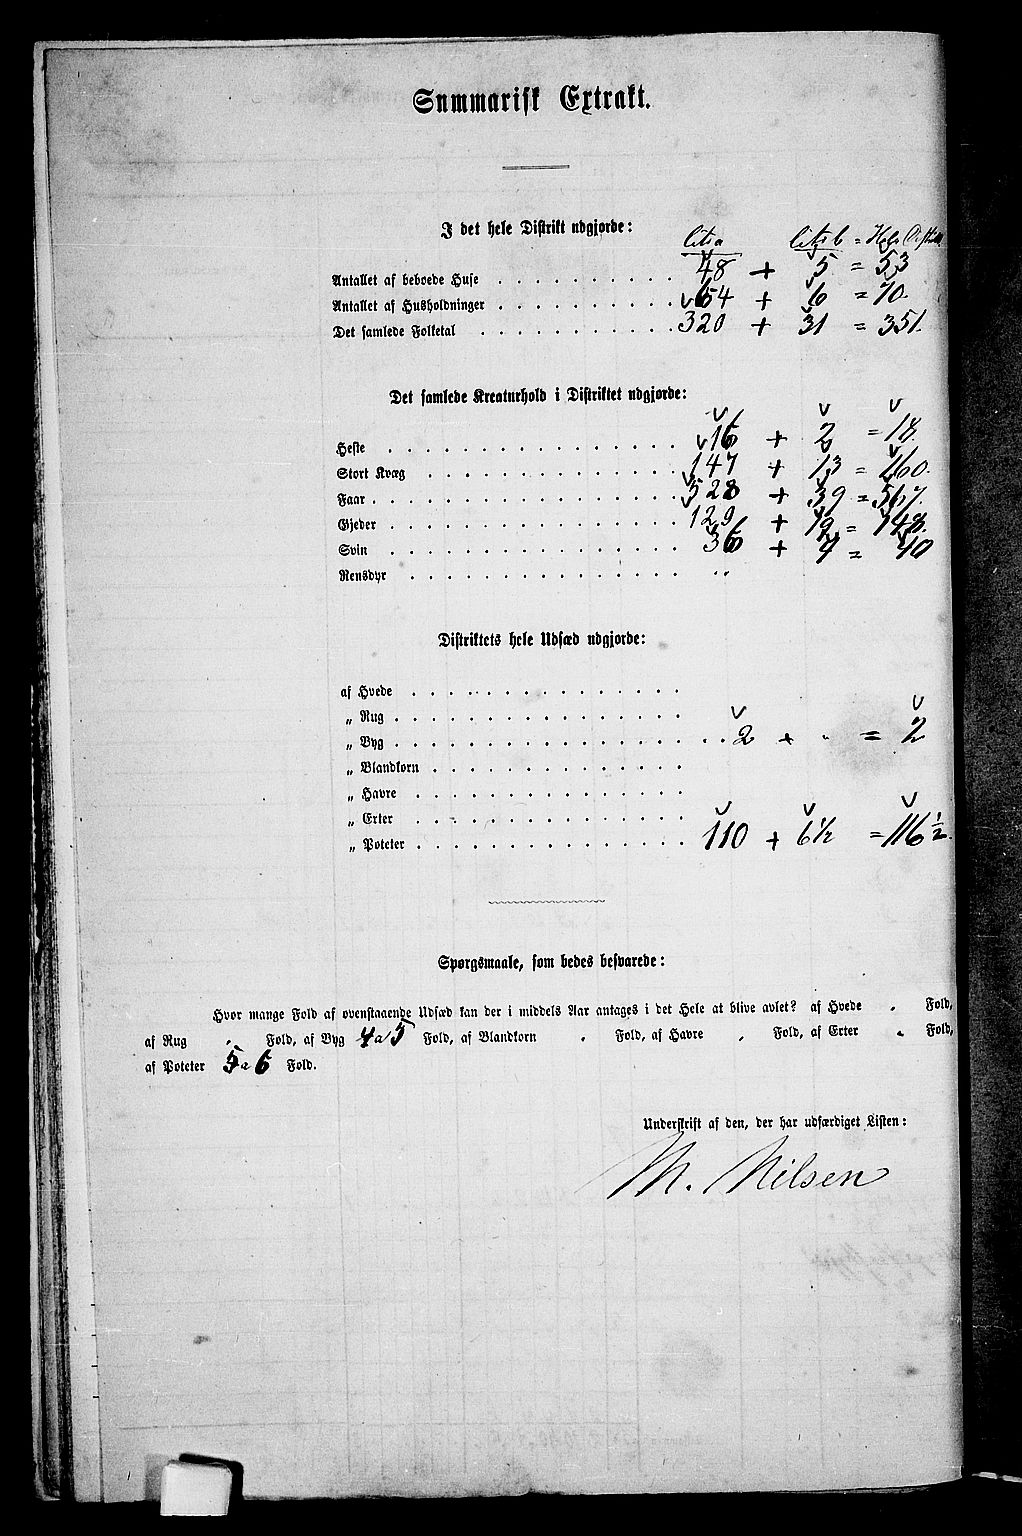 Summarisk Extrakt.
I det hele Distrikt udgjorde:
litra a litr b = Hele Distrikt
Antallet af beboede Huse . . . . . . . . . . 48 + 5 = 53
Antallet af Husholdninger . . . . . . . . . . 64 + 6 = 70.
Det samlede Folketal . . . . . . . . . . . 320 + 31 = 351.
Det samlede Kreaturhold i Distriktet udgjorde:
Heste . . . . . . . . . . . . . . . . 16 + 2 = 18.
Stort Kvæg . . . . . . . . . . . . . . 147 + 13 = 160.
Faar . . . . . . . . . . . . . . . . . 528 + 39 = 567.
Gjeder . . . . . . . . . . . . . . . . 129 + 19 = 148.
Svin . . . . . . . . . . . . . . . . 36 + 4 = 40
Rensdyr . . . . . . . . . . . . . . . "
Distriktets hele Udsæd udgjorde:
af Hvede . . . . . . . . . . . . . . .
„ Rug . . . . . . . . . . . . . . . .
„ Byg . . . . . . . . . . . . . . . . . . 2 + " = 2
„ Blandkorn . . . . . . . . . . . . . .
„ Havre . . . . . . . . . . . . . . .
„ Erter . . . . . . . . . . . . . . .
„ Poteter . . . . . . . . . . . . . . . 110 + 6 1/2 = 116 1/2.
Spørgsmaale, som bedes besvarede:
Hvor mange Fold af ovenstaaende Udsæd kan der i middels Aar antages i det Hele at blive avlet? af Hvede " Fold,
af Rug " Fold, af Byg 4 a 5 Fold, af Blandkorn " Fold, af Havre " Fold, af Erter " Fold,
af Poteter 5 a 6 Fold.
Underskrift af den, der har udfærdiget Listen:
M. Nilsen